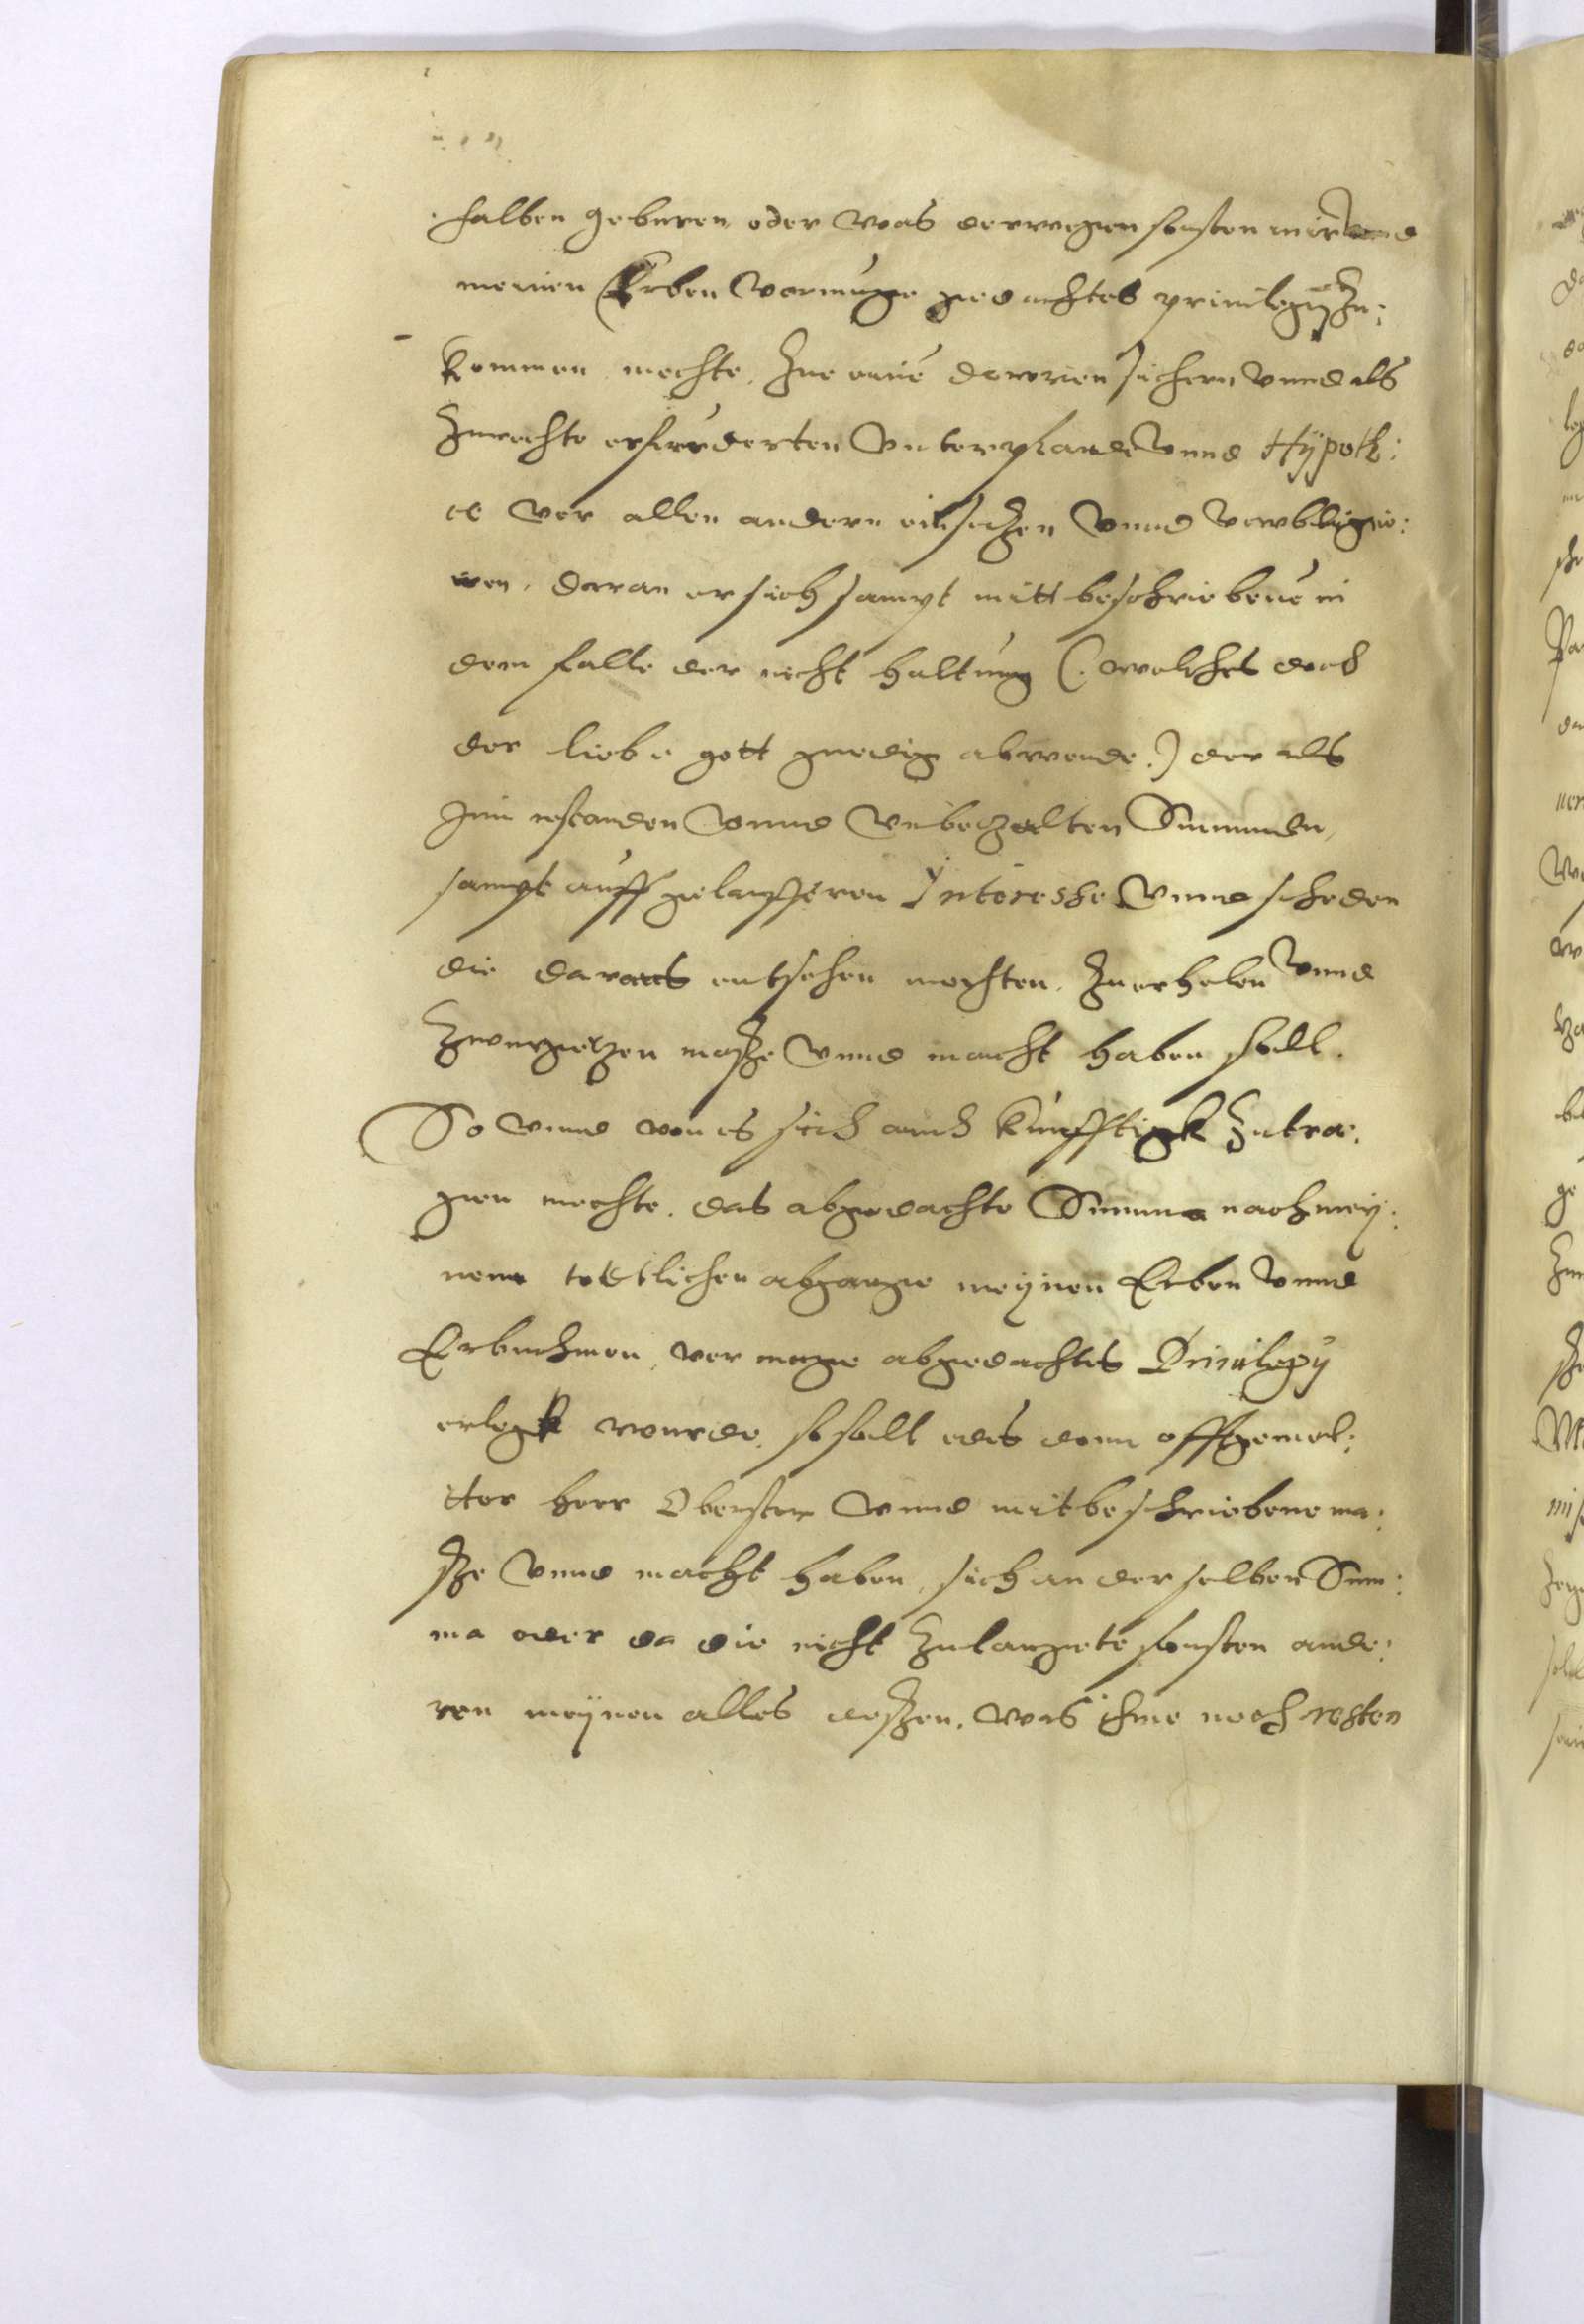 halben geburen oder was derwegen sonsten mir vnd
meinen Erben vormuge gedachtes priuilegij zu:
kommen mechte. Zue eine waren sichern vnnd als
Zurechte erfurderten vnterpfande vnnd Hÿpoth:
ec vor allen andern einsetzen vnnd verobligie:
ren, daran er sich sampt mitt beschriebene in
dem falle der nicht haltung (: welches doch
der liebe gott gnedig abwende :) der als
dann restanden vnnd vnbezalten Summen,
sampt auff gelauffenen Interesse vnnd scheden
die daraus entstehen mochten. Zuerholen vnnd
Zuergetzen masze vnnd macht haben soll.
So vnnd wen es sich auch kunfftigk Zutra:
gen mechte, das abgedachte Summa nach mey:
nem tottlichen abgange meÿnen Erben vnnd
Erbnehmen, vor muge abgedachtes Priuilegij
erlegk wurde, so soll alsdenn offtgemel:
tter herr Oberster vnnd mitbeschriebene ma:
sze vnnd macht haben, sich an der selben Sum:
ma oder da die nicht Zulangete sonsten ande:
ren meÿnen alles deszen, was ihme noch resten